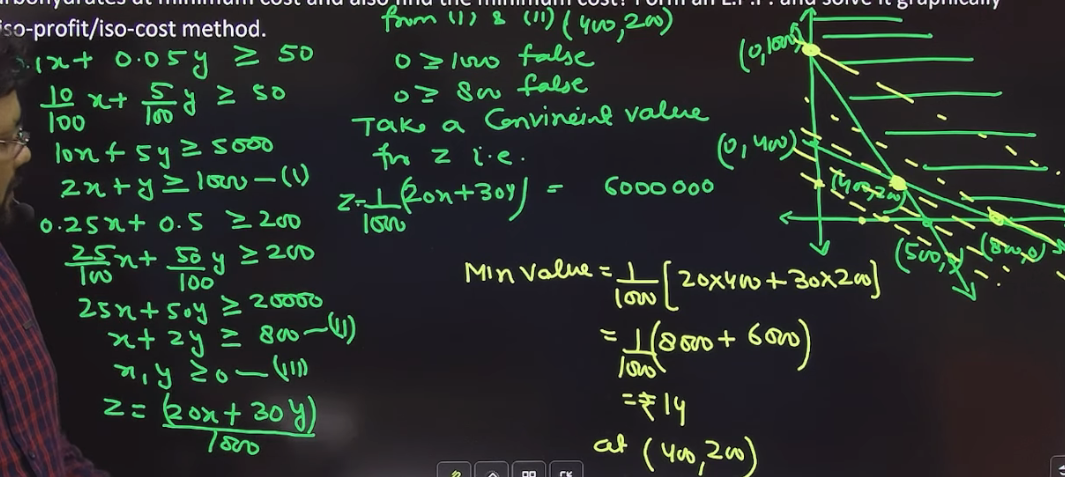 arbohydrates at minimum cost and also find the minimum cost? Form an L.P.P. and solve it graphically
iso-profit/iso-cost method.
.1x + 0.05y ≥ 50
10/100 x + 5/100 y ≥ 50
10x + 5y ≥ 5000
2x + y ≥ 1000 — (I)
0.25x + 0.5 ≥ 200
25/100 x + 50/100 y ≥ 200
25x + 50y ≥ 20000
x + 2y ≥ 800 — (II)
x, y ≥ 0 — (III)
Z = (20x + 30y)/1000
from (I) & (II) (400, 200)
0 ≥ 1000 false
0 ≥ 800 false
Take a Convineint value
for Z i.e.
Z = 1/1000 (20x + 30y) = 6000000
Min value = 1/1000 [20×400 + 30×200]
= 1/1000 (8000 + 6000)
= ₹ 14
at (400, 200)
(0, 1000)
(0, 400)
(400, 200)
(500,
(800, 0)